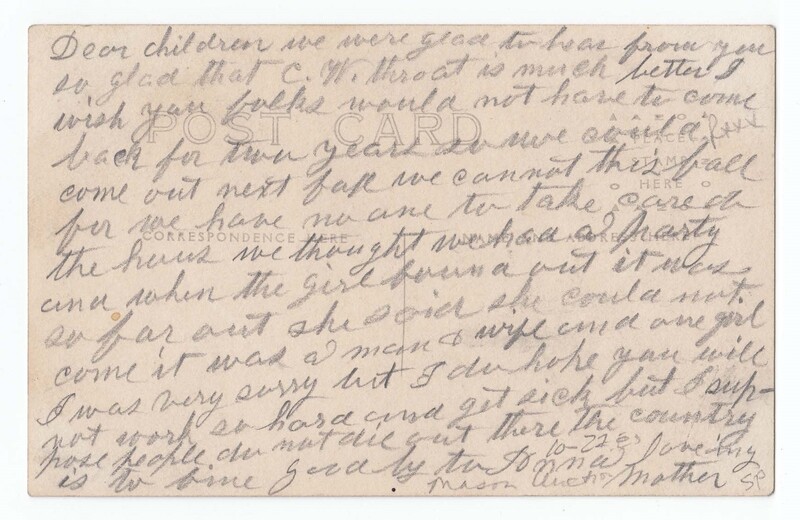 Dear children we were glad to hear from you
so glad that C. W. throat is much better I
wish you folks would not have to come
POST CARD
back for two years so we could
PLACE
STAMP
HERE
come out next fall we cannot this fall
for we have no one to take care o
CORRESPONDENCE HERE
the hous we thought we had a party
and when the girl found out it was
so far out she said she could not
come it was a man & wife and one girl
I was very sorry but I do hope you will
not work so hard and get sick but I sup-
pose people do not die out there the country
is to bine good by to Donna loveing
Mother
10-22
Mason Auction